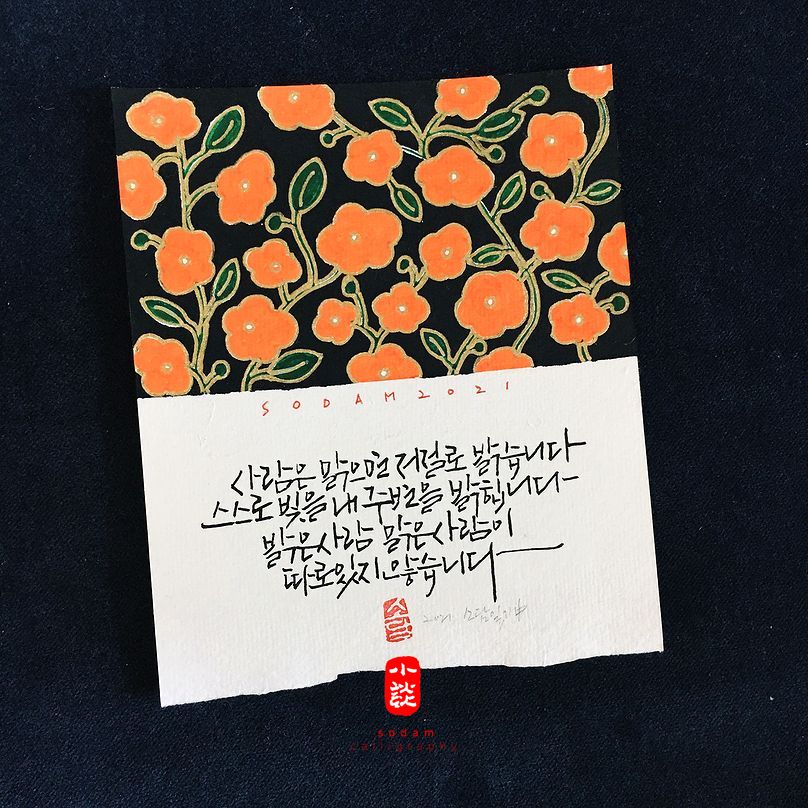 SODAM2021
사람은 맑으면 저절로 밝습니다
스스로 빛을 내 주변을 밝힙니다
밝은사람 맑은사람이
따로있지 않습니다
소담
2021. 소담일기中
小談
sodam
calligraphy